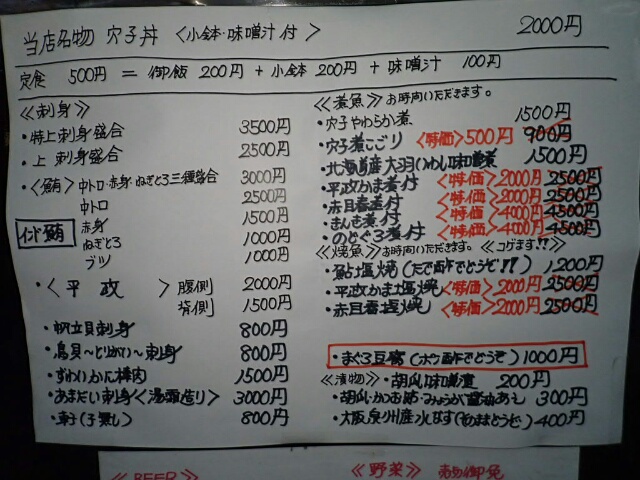 当店名物 穴子丼 〈小鉢・味噌汁付〉 2000円
定食 500円 = 御飯 200円 + 小鉢 200円 + 味噌汁 100円
≪刺身≫
・特上刺身盛合 3500円
・上 刺身盛合 2500円
・〈鮪〉中トロ・赤身・ねぎとろ三種盛合 3000円
中トロ 2500円
赤身 1500円
インド鮪
ねぎとろ 1000円
ブツ 1000円
・〈平政〉腹側 2000円
背側 1500円
・帆立貝刺身 800円
・鳥貝〜とりがい〜刺身 800円
・ずわいかに棒肉 1500円
・あまだい刺身〈湯頭造り〉 3000円
800円
≪煮魚≫お時間いただきます。
・穴子やわらか煮 1500円
・穴子煮こごり 〈特価〉500円 900円
・北海道産大羽いわし味噌煮 1500円
・平政かま煮付 〈特価〉2000円 2500円
・赤目番煮付 〈特価〉2000円 2500円
・きんき煮付 〈特価〉4000円 4500円
・のどぐろ煮付 〈特価〉4000円 4500円
≪焼魚≫お時間いただきます。≪コゲます!!≫
・鮎塩焼(たで酢でどうぞ!!) 1200円
・平政かま塩焼 〈特価〉2000円 2500円
・赤目番塩焼 〈特価〉2000円 2500円
・まぐろ豆腐(ポン酢でどうぞ) 1000円
≪漬物≫・胡瓜味噌漬 200円
・胡瓜・かつお節・みょうが醤油あえ 300円
・大阪泉州産水なす(そのままどうぞ) 400円
≪BEER≫
≪野菜≫